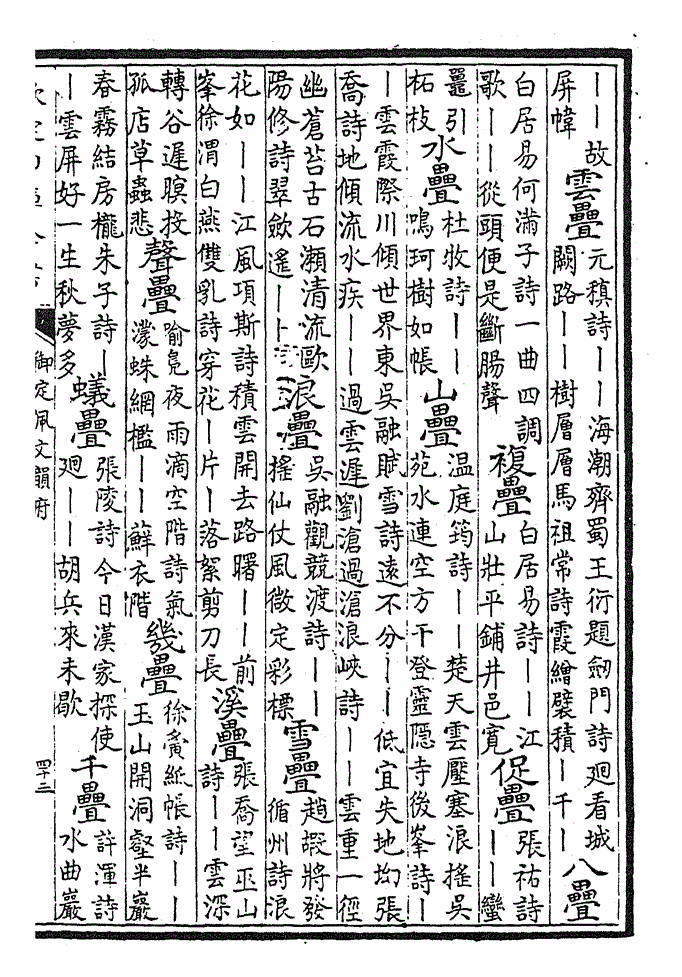 ——故屏幃雲疊元稹詩——海潮齊蜀王衍題劒門詩廻看城闕路——樹層層馬祖常詩霞繒襞積—千—八疊
白居易何滿子詩一曲四調歌——從頭便是斷腸聲複疊白居易詩——江山壯平鋪井邑寬促疊張祜詩——蠻
鼉引柘枝水疊杜牧詩——鳴珂樹如帳山疊温庭筠詩——楚天雲壓塞浪搖吳苑水連空方干登靈隠寺後峯詩—
—雲霞際川傾世界東吳融賦雪詩遠不分——低宜失地㘭張喬詩地傾流水疾——過雲遲劉滄過滄浪峽詩——雲重一徑
幽蒼苔古石瀬清流歐陽修詩翠斂遙——浪疊吳融觀競渡詩——搖仙仗風微定彩標雪疊趙嘏將發循州詩浪
花如——江風項斯詩積雲開去路曙——前峯徐渭白燕雙乳詩穿花—片—落絮剪刀長溪疊張喬望巫山詩——雲深
轉谷遲暝投孤店草蟲悲聲疊喻鳧夜雨滴空階詩氣濛蛛網檻——蘚衣階幾疊徐夤紙帳詩——玉山開洞壑半巖
春霧結房櫳朱子詩——雲屏好一生秋夢多蟻疊張陵詩今日漢家探使廻——胡兵來未歇千疊許渾詩水曲巖
御定佩文韻府
四十三